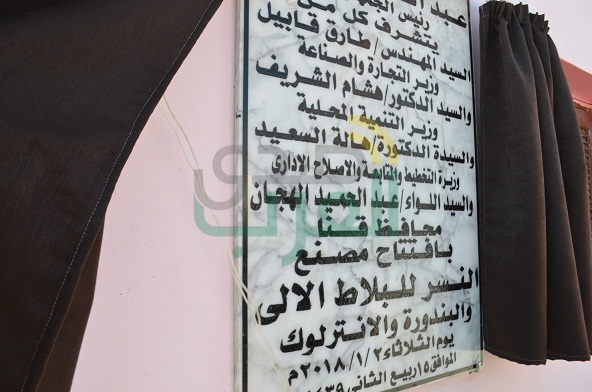 عبد
رئيس
يتشرف كل من
السيد المهندس/ طارق قابيل
وزير التجارة والصناعة
والسيد الدكتور/ هشام الشريف
وزير التنمية المحلية
والسيدة الدكتورة/ هالة السعيد
وزيرة التخطيط والمتابعة والاصلاح الادارى
والسيد اللواء/ عبد الحميد الهجان
محافظ قنا
بافتتاح مصنع
النسر للبلاط الالى
والبندورة والانترلوك
يوم الثلاثاء ٢٠١٨/١/٢م
الموافق ١٥ ربيع الثانى
صدى
العرب